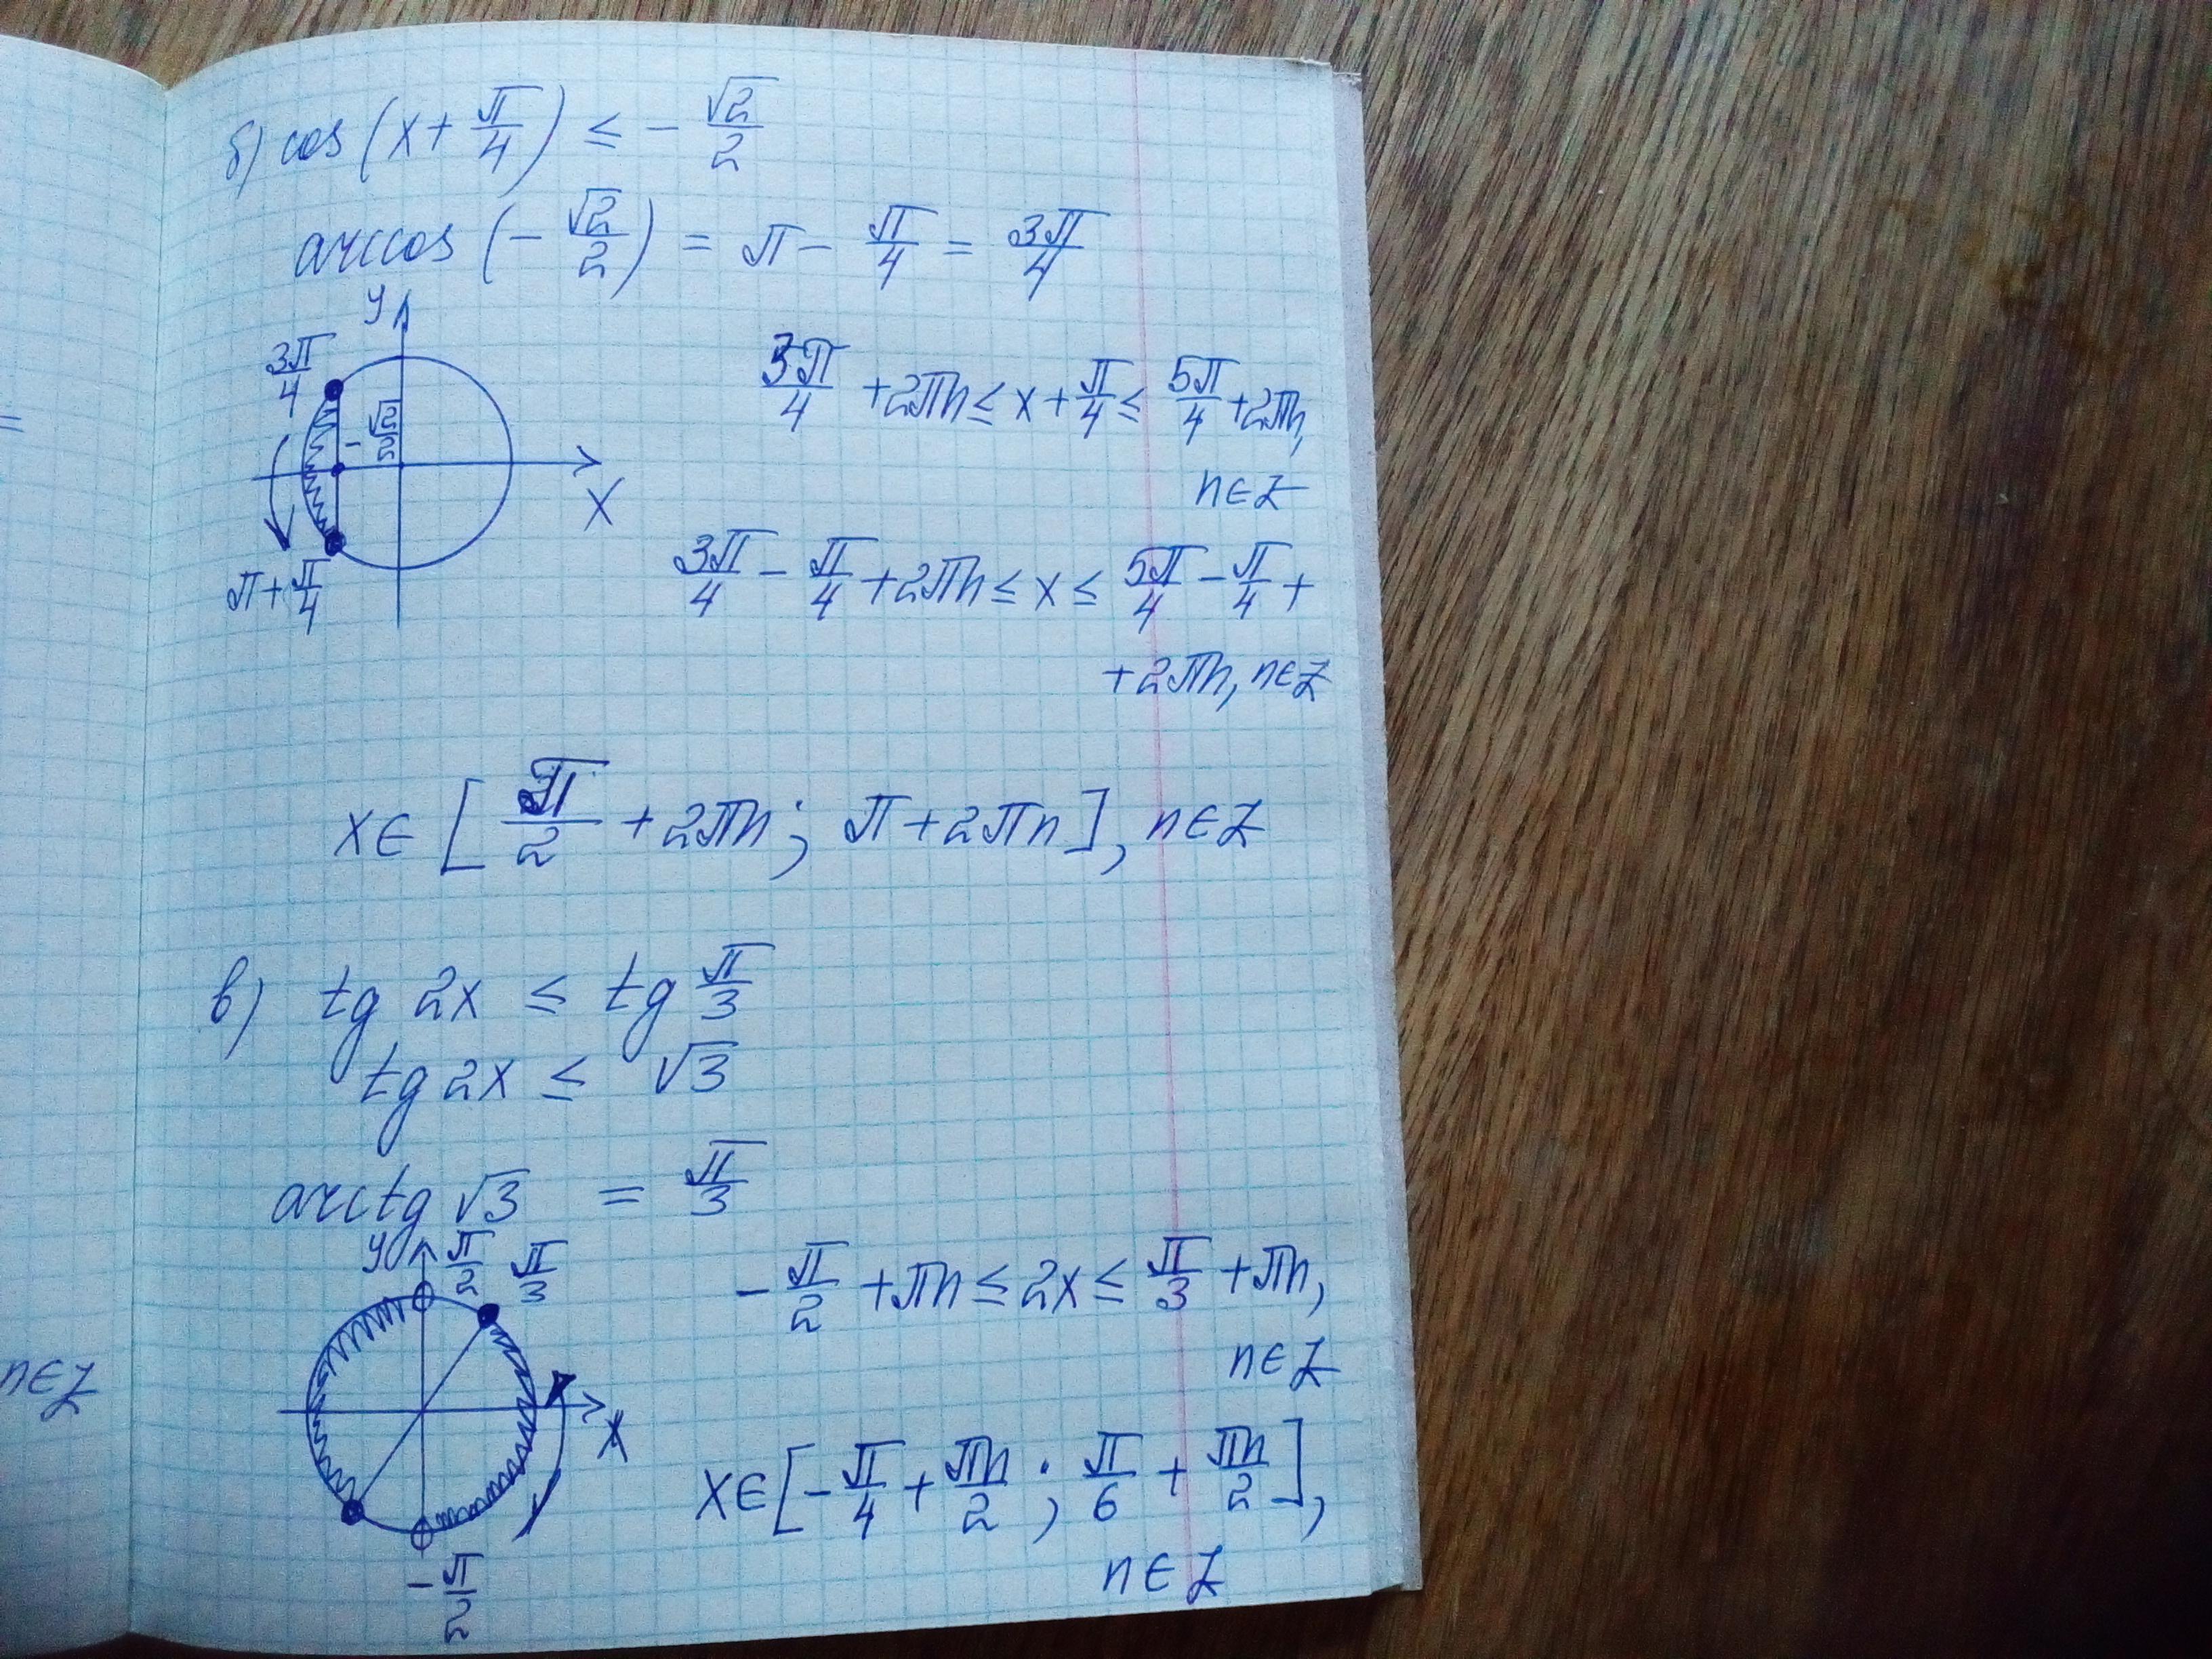 б) cos (x + π/4) ≤ - √2/2
arccos (- √2/2) = π - π/4 = 3π/4
y
3π/4
- √2/2
x
π + π/4
3π/4 + 2πn ≤ x + π/4 ≤ 5π/4 + 2πn,
n ∈ Z
3π/4 - π/4 + 2πn ≤ x ≤ 5π/4 - π/4 +
+ 2πn, n ∈ Z
x ∈ [π/2 + 2πn; π + 2πn], n ∈ Z
в) tg 2x ≤ tg π/3
tg 2x ≤ √3
arctg √3 = π/3
y
π/2
π/3
x
- π/2
- π/2 + πn ≤ 2x ≤ π/3 + πn,
n ∈ Z
x ∈ [- π/4 + πn/2; π/6 + πn/2],
n ∈ Z
=
n ∈ Z